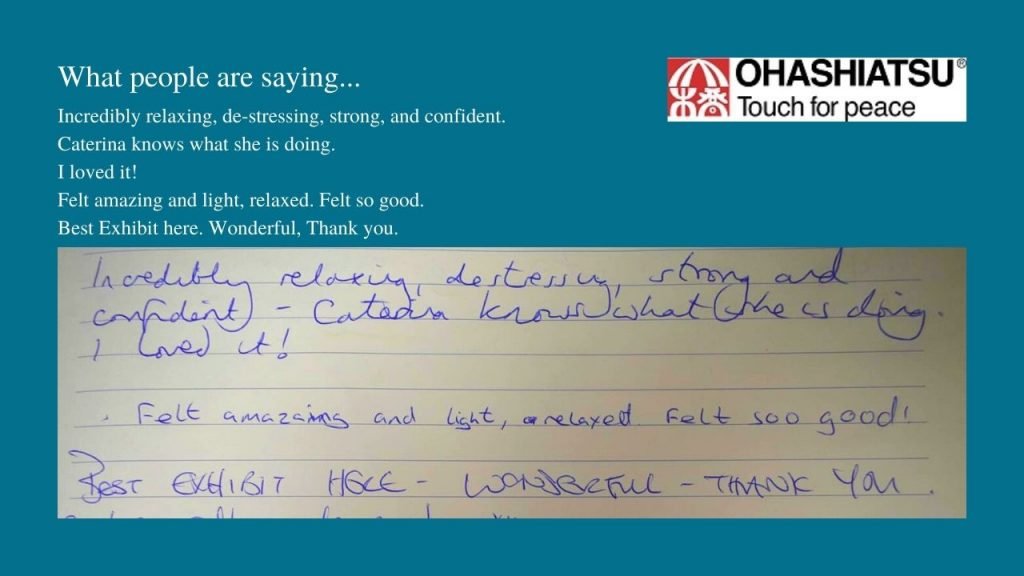 What people are saying...
Incredibly relaxing, de-stressing, strong, and confident.
Caterina knows what she is doing.
I loved it!
Felt amazing and light, relaxed. Felt so good.
Best Exhibit here. Wonderful, Thank you.
OHASHIATSU®
Touch for peace
Incredibly relaxing, destressing, strong and
confident) - Caterina knows what she is doing.
I loved it!
Felt amazaing and light, relaxed. Felt soo good!
BEST EXHIBIT HERE - WONDERFUL - THANK YOU.